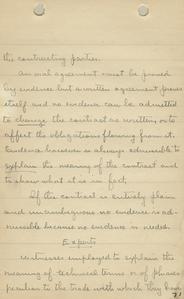 the contracting parties.
An oral agreement must be proved
by evidence but a written agreement proves
itself and no evidence can be admitted
to change the contract as written or to
affect the obligations flowing from it.
Evidence however is always admissible to
explain the meaning of the contract and
to show what it is in fact.
If the contract is entirely plain
and unambiguous no evidence is ad-
missible because no evidence is needed.
Experts
Witnesses employed to explain the
meaning of technical terms or of phrases
peculiar to the trade with which they have